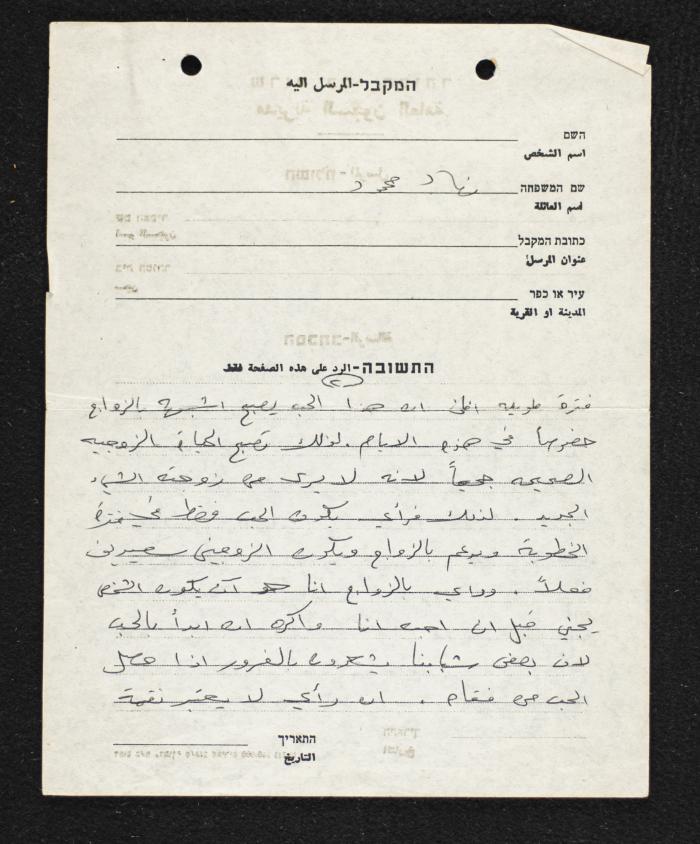 המקבל-المرسل اليه
השם
اسم الشخص
שם המשפחה نهاد محمود
اسم العائلة
כתובת המקבל
عنوان المرسل
עיר או כפר
المدينة او القرية
התשובה-الرد على هذه الصفحة فقط
(٢)
فترة طويله اظن ان هذا الحب يصبح اشبه بالزواج
خصوصاً في هذه الايام. لذلك تصبح الحياة الزوجيه
الصحيحه جحيماً لانه لا يرى من زوجته الشيء
الجديد. لذلك فرأي يكون الحب فقط في فترة
الخطوبة ويدعم بالزواج ويكون الزوجين سعيدين
فعلاً. ورأي بالزواج انا هو أن يكون الشخص
يحبني قبل ان احب انا واكره ان ابدأ بالحب
لان بعض شبابنا يشعرون بالغرور اذا حصل
الحب من فتاة. ان رأي لا يعتبر نقمة
התאריך
التاريخ